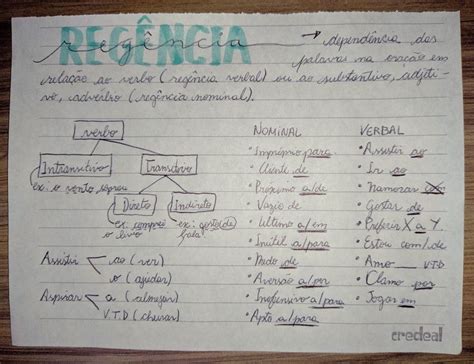 REGÊNCIA
regência → dependência das
palavras na oração em
relação ao verbo (regência verbal) ou ao substantivo, adjeti-
vo, advérbio (regência nominal).
verbo
Intransitivo Transitivo
ex: o vento soprou
Direto Indireto
ex: comprei ex: gosto de
o livro bala
Assistir ao (ver)
o (ajudar)
Aspirar a (almejar)
V.T.D (cheirar)
NOMINAL
• Impróprio para
• Ciente de
• Próximo a/de
• Vazio de
• Último a/em
• Inútil a/para
• de
• Aversão a/por
• Inofensivo a/para
• Apto a/para
VERBAL
• Assistir ao
• Ir ao
• Namorar com
• Gostar de
• Preferir X a Y
• Estou com/de
• Amo V.T.D
• Clamo por
• Jogar em
credeal